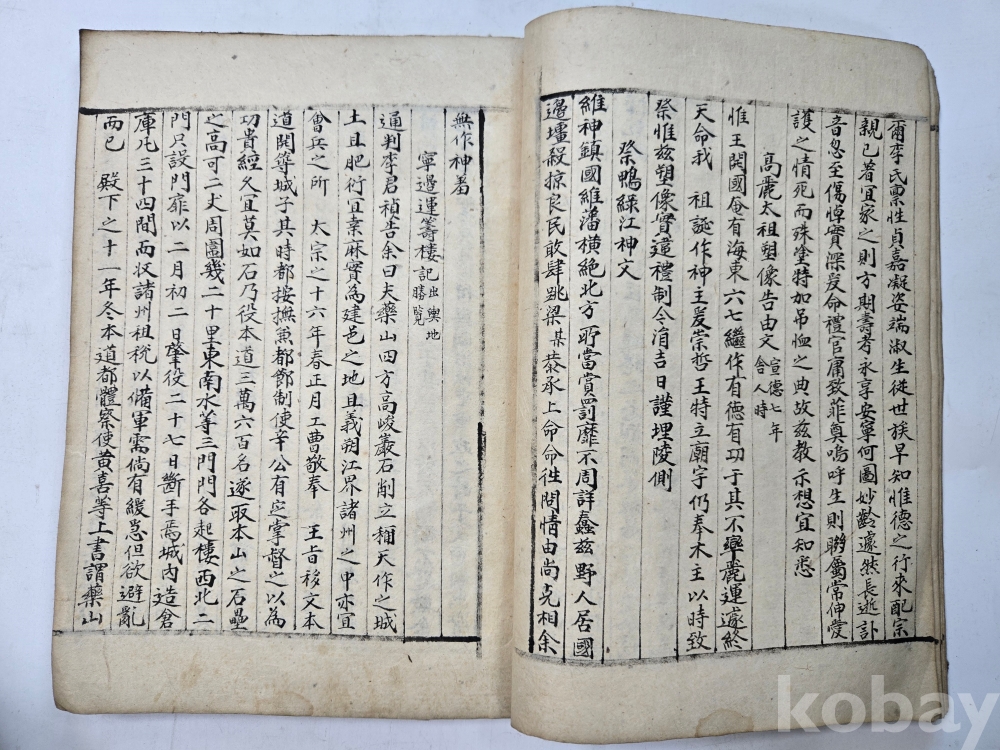 爾李氏稟性貞嘉凝姿端淑生從世族早知惟德之行來配宗
親已著宜家之則方期壽考永享安寧何圖妙齡遽然長逝訃
音忽至傷悼實深爰命禮官庸致菲奠嗚呼生則聯屬常伸愛
護之情死而殊塗特加吊恤之典故玆敎示想宜知悉
高麗太祖塑像告由文 宣德七年
舍人時
惟王開國奄有海東六七繼作有德有功于其不孿麗運遂終
天命我 祖誕作神主爰崇哲王特立廟宇仍奉木主以時致
祭惟玆塑像實違禮制今涓吉日謹埋陵側
祭鴨綠江神文
維神鎭國維藩橫絶北方所當賞罰靡不周詳蠢玆野人居國
邊壃殺掠良民敢肆跳梁某恭承上命命徃問情由尚克相余
無作神羞
寧邊運籌樓記 出輿地
勝覽
通判李君禎告余曰夫藥山四方高峻巖石削立稱天作之城
土且肥衍宜桒麻實爲建邑之地且義朔江界諸州之中亦宜
會兵之所 太宗之十六年春正月工曹敬奉 王旨移文本
道開等城子其時都按撫兼都節制使辛公有定掌督之以爲
功貴經久宜莫如石乃役本道三萬六百名遂取本山之石壘
之高可二丈周圍幾二十里東南水等三門門各起樓西北二
門只設門扉以二月初二日肇役二十七日斷手焉城內造倉
庫凡三十四間而收諸州租稅以備軍需倘有緩急但欲避亂
而已 殿下之十一年冬本道都體察使黃喜等上書謂藥山